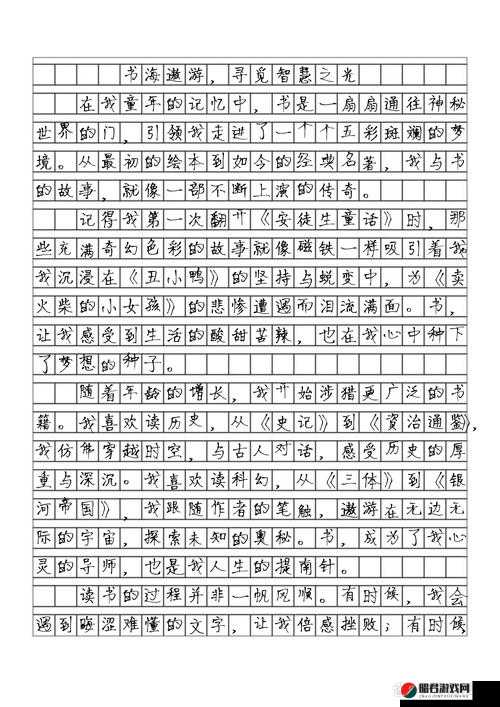 书海遨游，寻觅智慧之光
在我童年的记忆中，书是一扇扇通往神秘
世界的门，引领我走进了一个个五彩斑斓的梦
境。从最初的绘本到如今的经典名著，我与书
的故事，就像一部不断上演的传奇。
记得我第一次翻开《安徒生童话》时，那
些充满奇幻色彩的故事就像磁铁一样吸引着我
我沉浸在《丑小鸭》的坚持与蜕变中，为《卖
火柴的小女孩》的悲惨遭遇而泪流满面。书，
让我感受到生活的酸甜苦辣，也在我心中种下
了梦想的种子。
随着年龄的增长，我开始涉猎更广泛的书
籍。我喜欢读历史，从《史记》到《资治通鉴》，
我仿佛穿越时空，与古人对话，感受历史的厚
重与深沉。我喜欢读科幻，从《三体》到《银
河帝国》，我跟随作者的笔触，遨游在无边无
际的宇宙，探索未知的奥秘。书，成为了我心
灵的导师，也是我人生的指南针。
读书的过程并非一帆风顺。有时候，我会
遇到晦涩难懂的文字，让我倍感挫败；有时候，
昭君游戏网